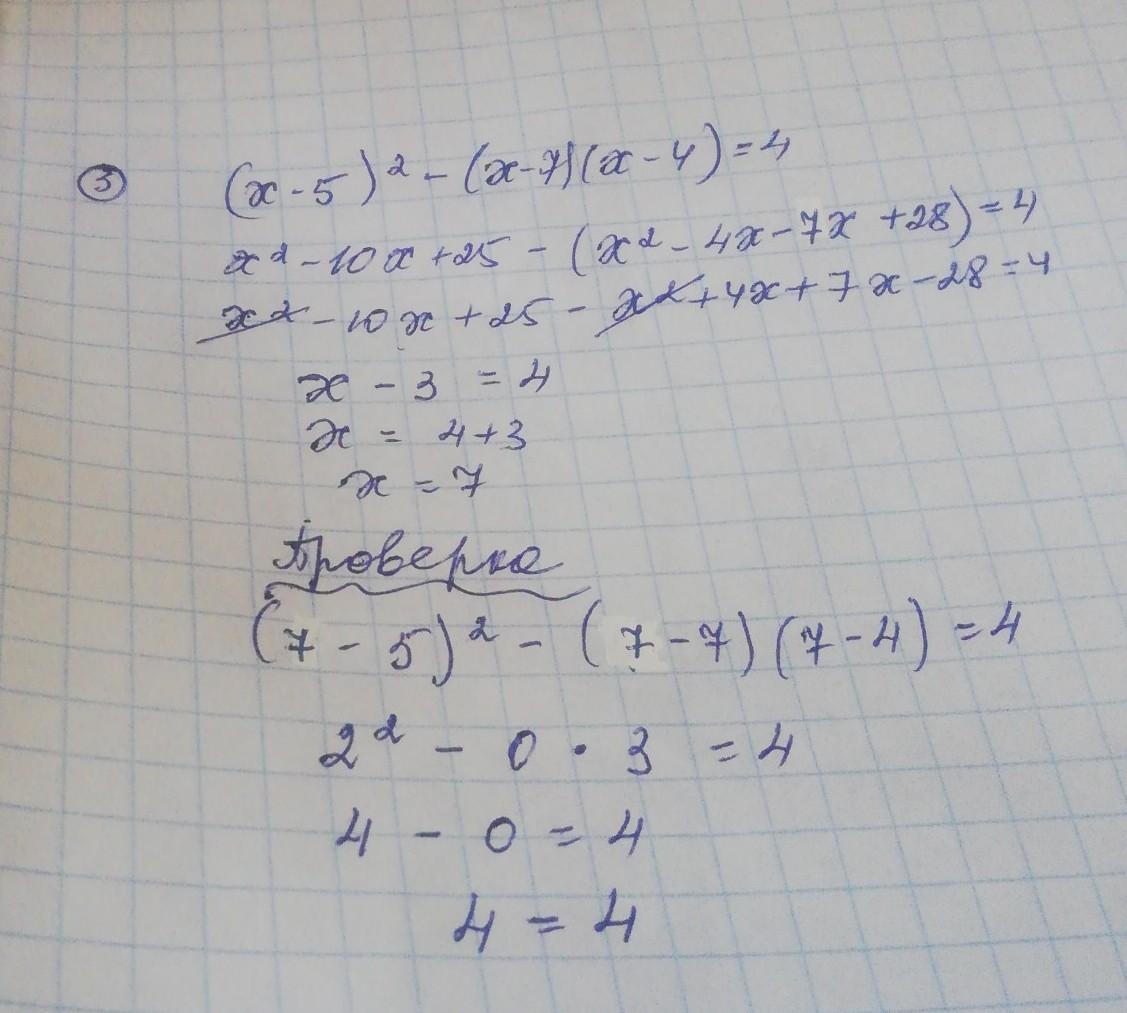 ③ (x-5)² - (x-7)(x-4)=4
x²-10x+25 - (x²-4x-7x+28)=4
x²-10x+25-x²+4x+7x-28=4
x - 3 = 4
x = 4+3
x = 7
Проверка
(7-5)² - (7-7)(7-4)=4
2² - 0 · 3 = 4
4 - 0 = 4
4 = 4